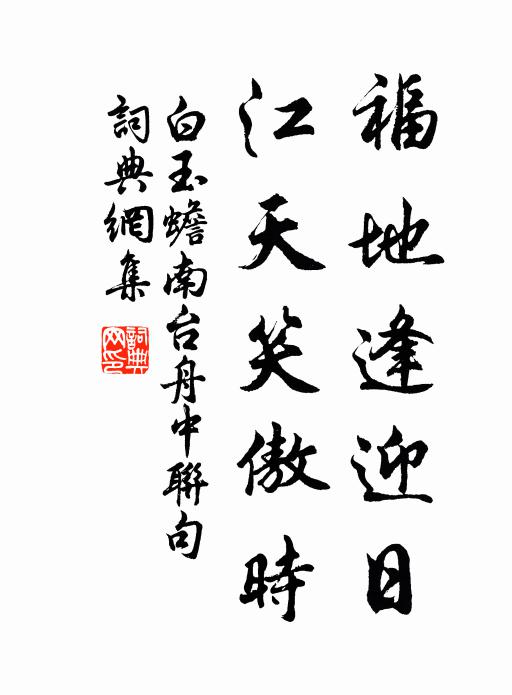 福地逢迎日
江天笑傲時
白玉蟾南台舟中聯句
詞典網集
詞典網印